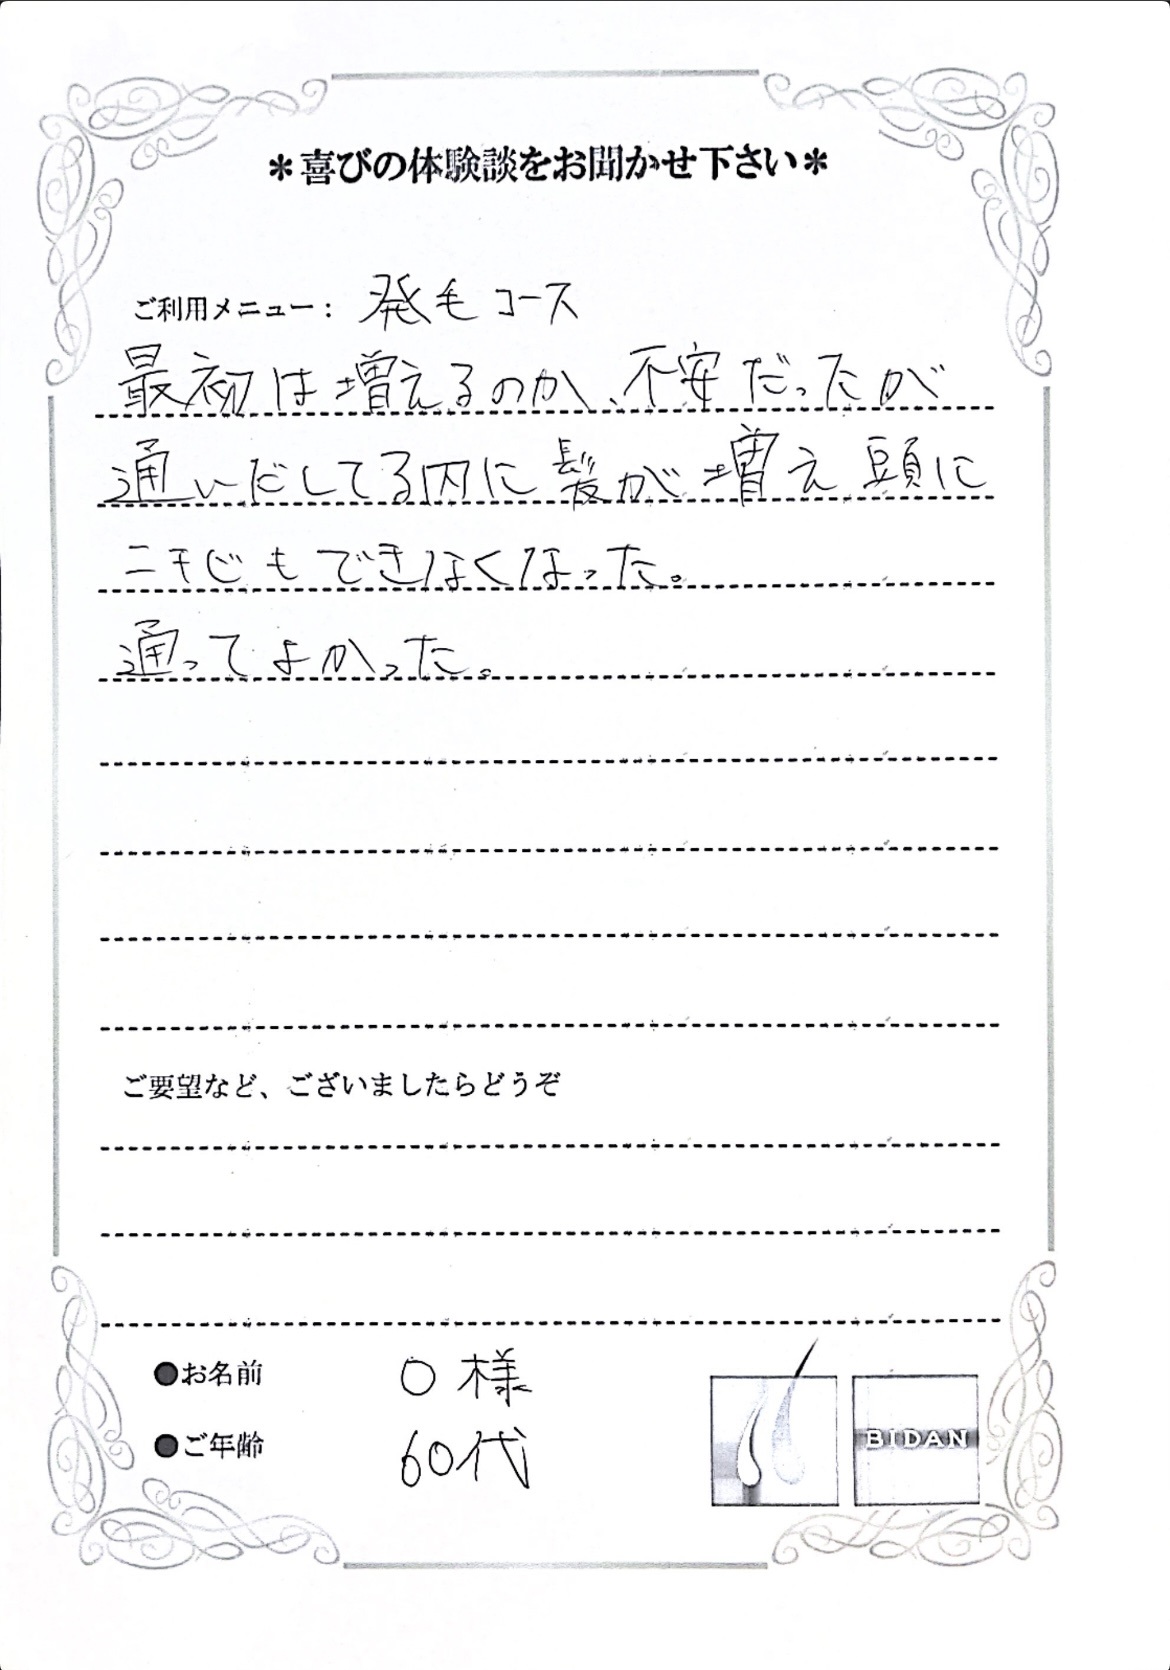 ＊喜びの体験談をお聞かせ下さい＊
ご利用メニュー： 発毛コース
最初は増えるのか、不安だったが
通いだしてる内に髪が増え頭に
ニキビもできなくなった。
通ってよかった。
ご要望など、ございましたらどうぞ
●お名前 O様
●ご年齢 60代
BIDAN